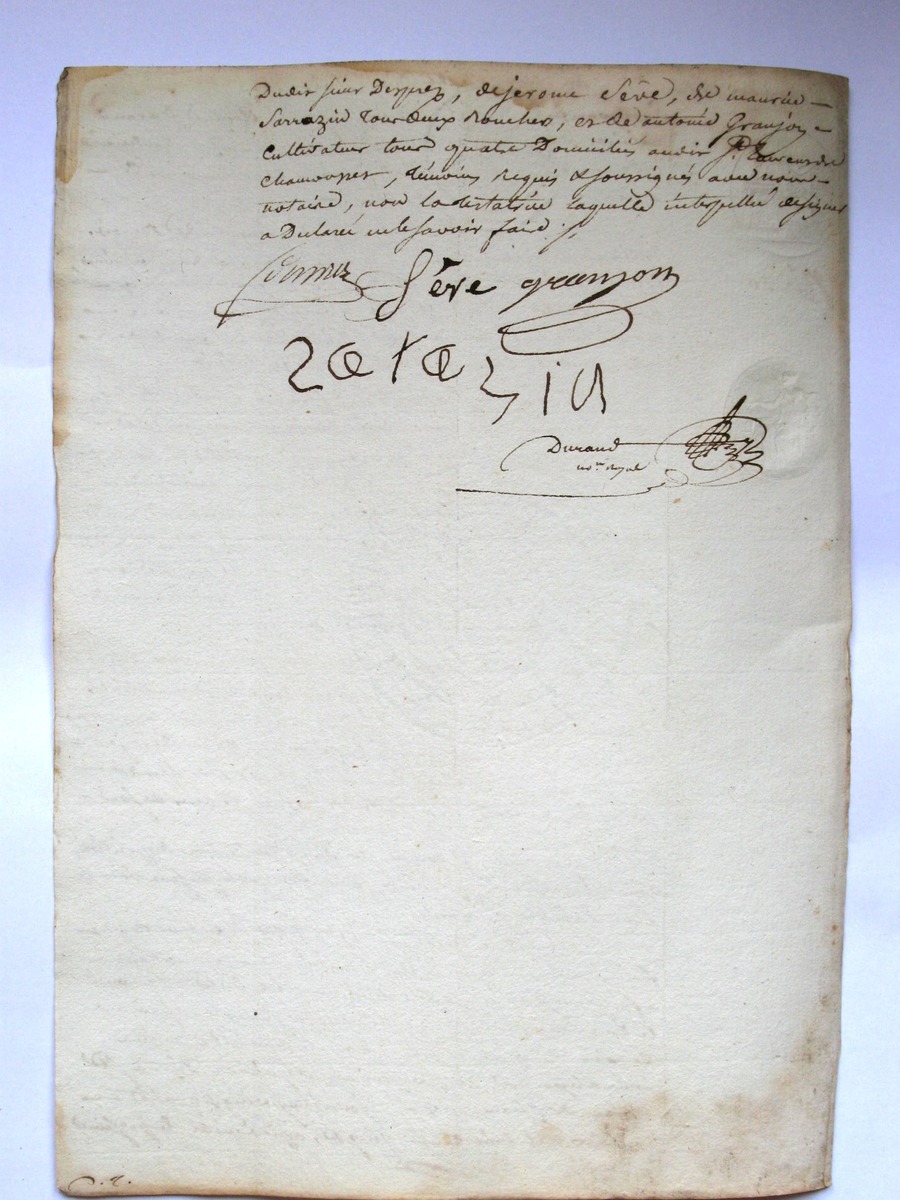 Dudit sieur Desprez, de jerome sève, de maurice
Sarrazin Tous deux Rocher, et de antoine Granjon
Cultivateur tous quatre Domiciliés audit St Laurent de
Chamousset, témoins requis & soussignés avec nous
notaire, non la testatrice laquelle interpellée de signer
a Declaré ne le savoir faire ./.
Sève granjon
Durand
nore royal